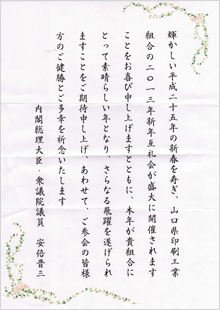 輝かしい平成二十五年の新春を寿ぎ、山口県印刷工業
組合の二〇一三年新年互礼会が盛大に開催されます
ことをお喜び申し上げますとともに、本年が貴組合に
とって素晴らしい年となり、さらなる飛躍を遂げられ
ますことをご期待申し上げ、あわせて、ご参会の皆様
方のご健勝とご多幸を祈念いたします
内閣総理大臣 衆議院議員 安倍晋三